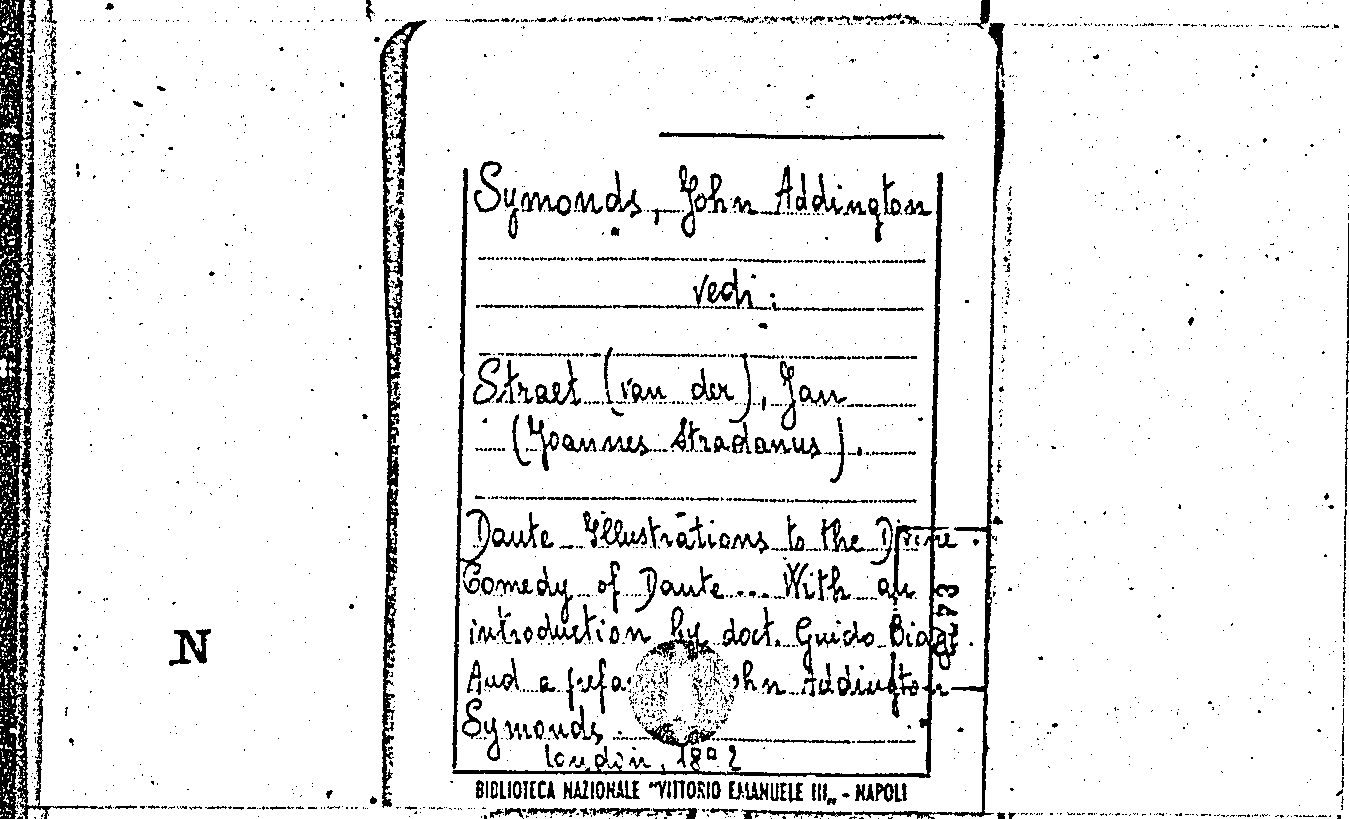 Symonds, John Addington
vedi:
Straet (van der), Jan
(Joannes Stradanus).
Dante Illustrations to the Divine
Comedy of Dante... With an
introduction by doct. Guido Biagi.
And a John Addington
Symonds.
London,
N
BIBLIOTECA NAZIONALE "VITTORIO EMANUELE III„ - NAPOLI